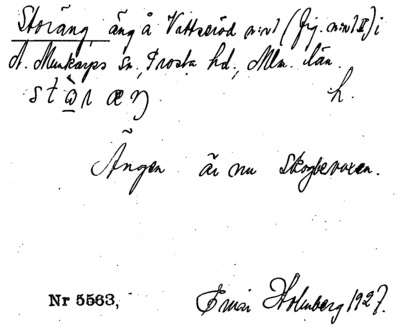 Storäng, äng å Vittseröd nr 1 (fig. nr 1 II) i
Ö. Munkarps sn, Frosta hd, Mlm. län.
h.
Ängen är nu skogbevuxen.
Nr 5563, Einar Holmberg 1927.